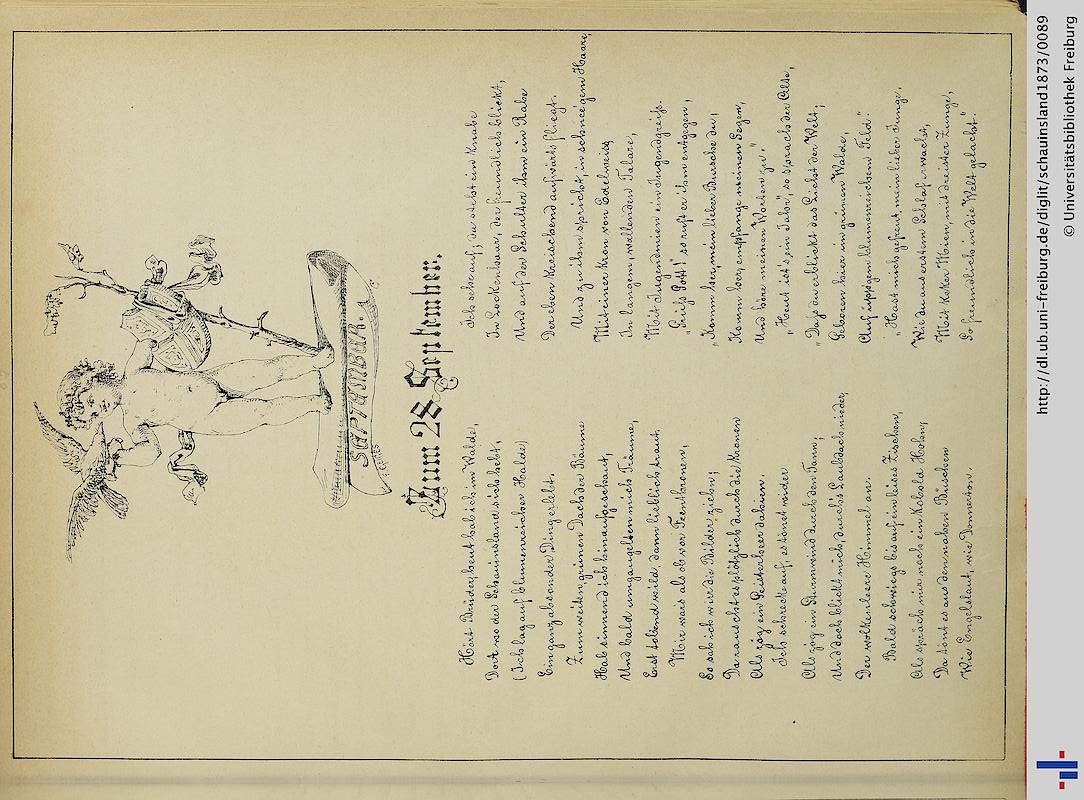 SEPTEMBER.
Zum 28. September.
Hört Brüder, heut hab ich im Walde,
Dort wo der Schauinsland sich hebt,
(Ich lag auf blumenreicher Halde)
Ein ganz absonder Ding erlebt.
Zum weiten grünen Dach der Bäume
Hab sinnend ich hinaufgeschaut,
Und bald umgaugelten mich Träume,
Erst tobend wild, dann lieblich traut.
Mir wars als ob vor Feenthronen,
So sah ich wirre Bilder ziehn;
Da rauscht es plötzlich durch die Kronen
Als zög ein Geisterheer dahin.
Ich schrecke auf, es tönet wider
Als zög ein Sturmwind durch den Tann,
Und doch blickt mich, durch's Laubdach nieder,
Der wolkenleere Himmel an.
Bald schwiegs bis auf ein leises Zischen,
Als spräch mir noch ein Kobold Hohn;
Da tönt es aus den nahen Büschen
Wie Engelslaut, wie Donnerton.
Ich sehe auf; da steht ein Knabe
In Lockenhaar, der freundlich blickt,
Und auf der Schulter ihm ein Rabe
Der eben kreischend aufwärts fliegt.
Und zu ihm spricht, in schneeigem Haare,
Mit einer Kron von Edelweiss
In langem, wallenden Talare,
Mit Jugendmien ein Jugendgreis.
„Grüss Gott!" so ruft er ihm entgegen,
„Komm her, mein lieber Bursche du;
Komm her, empfange meinen Segen,
Und höre meinen Worten zu."
„Heut ist's ein Jahr", so sprach der Alte,
„Daß du erblickt das Licht der Welt;
Geboren hier im grünen Walde,
Auf üppigem blumenreichen Feld."
„Hast mich gefreut, mein lieber Junge,
Wie du aus erstem Schlaf erwacht,
Mit keker Mien, mit dreister Zunge,
So freundlich in die Welt gelacht".
http://dl.ub.uni-freiburg.de/diglit/schauinsland1873/0089
© Universitätsbibliothek Freiburg